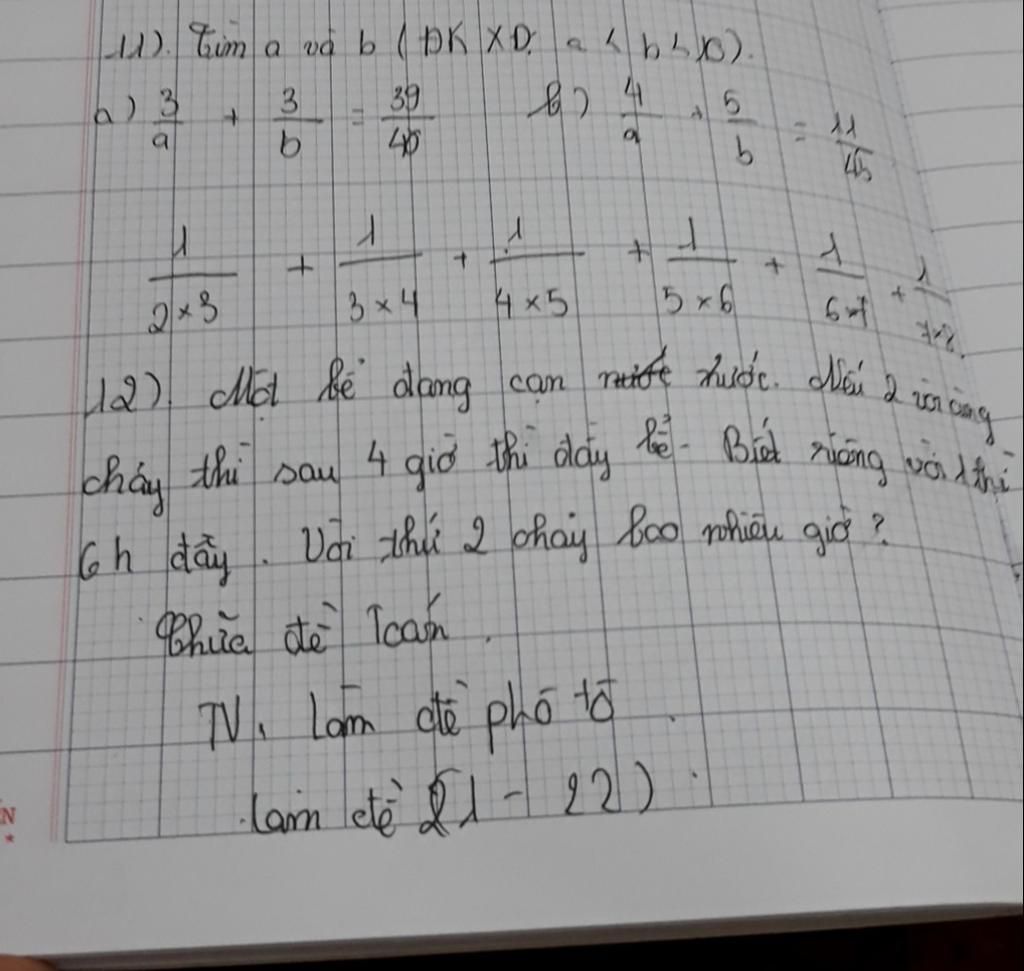 11). Tìm a và b ( ĐK XĐ: a < b < 10).
a) 3/a + 3/b = 39/40 b) 4/a + 5/b = 11/45
1/2×3 + 1/3×4 + 1/4×5 + 1/5×6 + 1/6×7 + 1/7×8.
12) Một bể đang cạn nước. Nếu 2 vòi cùng
chảy thì sau 4 giờ thì đầy bể. Biết riêng vòi 1 thì
6h đầy. Vòi thứ 2 chảy bao nhiêu giờ?
Chữa đề Toán.
TV. Làm đề phô tô.
làm đề (21 - 22)
N